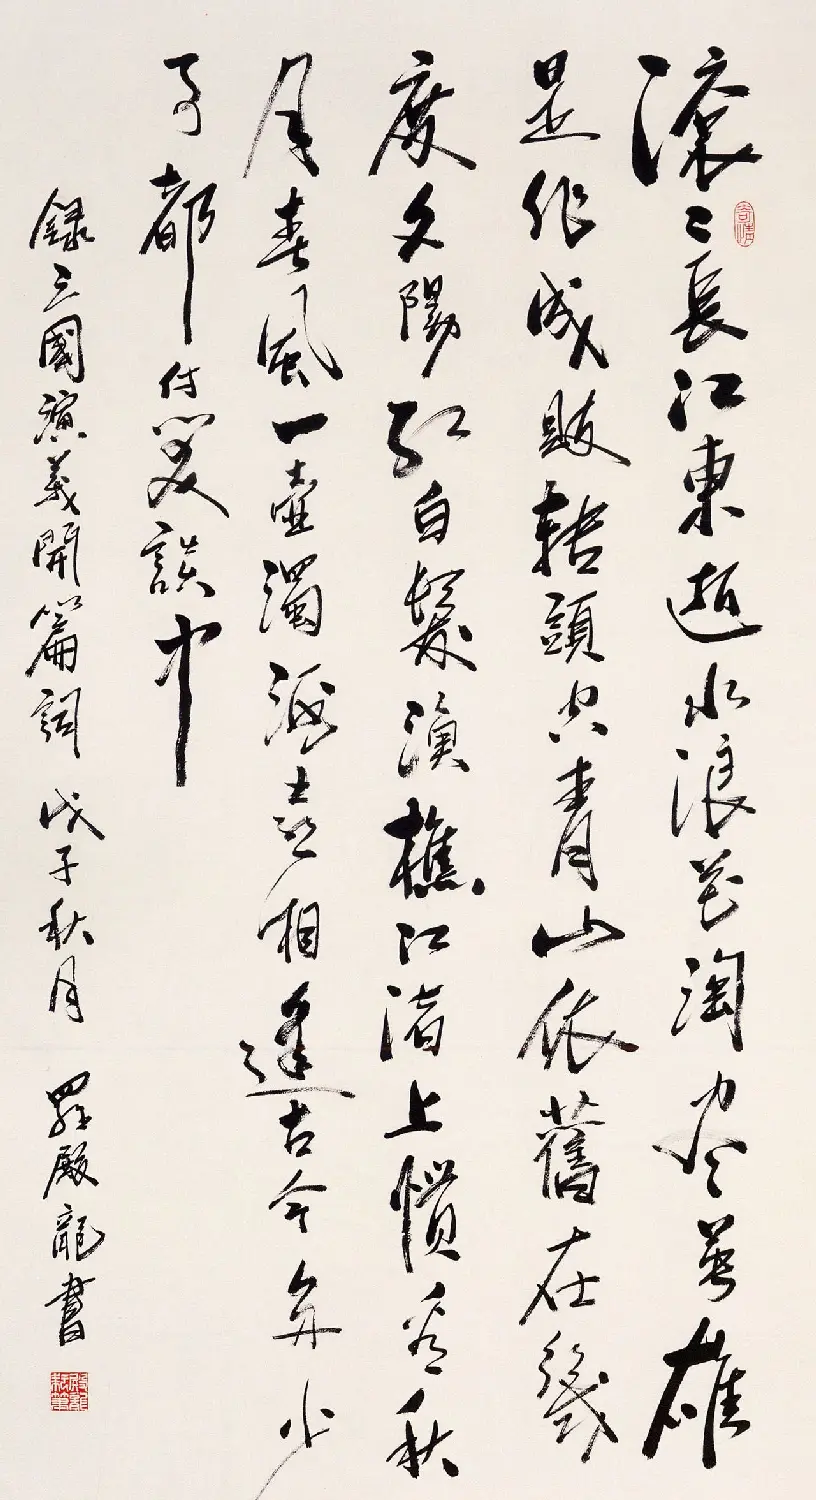 滚〻長江東逝水浪花淘尽英雄
是非成敗轉頭空青山依舊在幾
度夕陽紅白髮漁樵江渚上慣看秋
月春風一壺濁酒喜相逢古今多少
事都付笑談中
錄三國演義開篇詞 戊子秋月 羅殿龍書
寄情